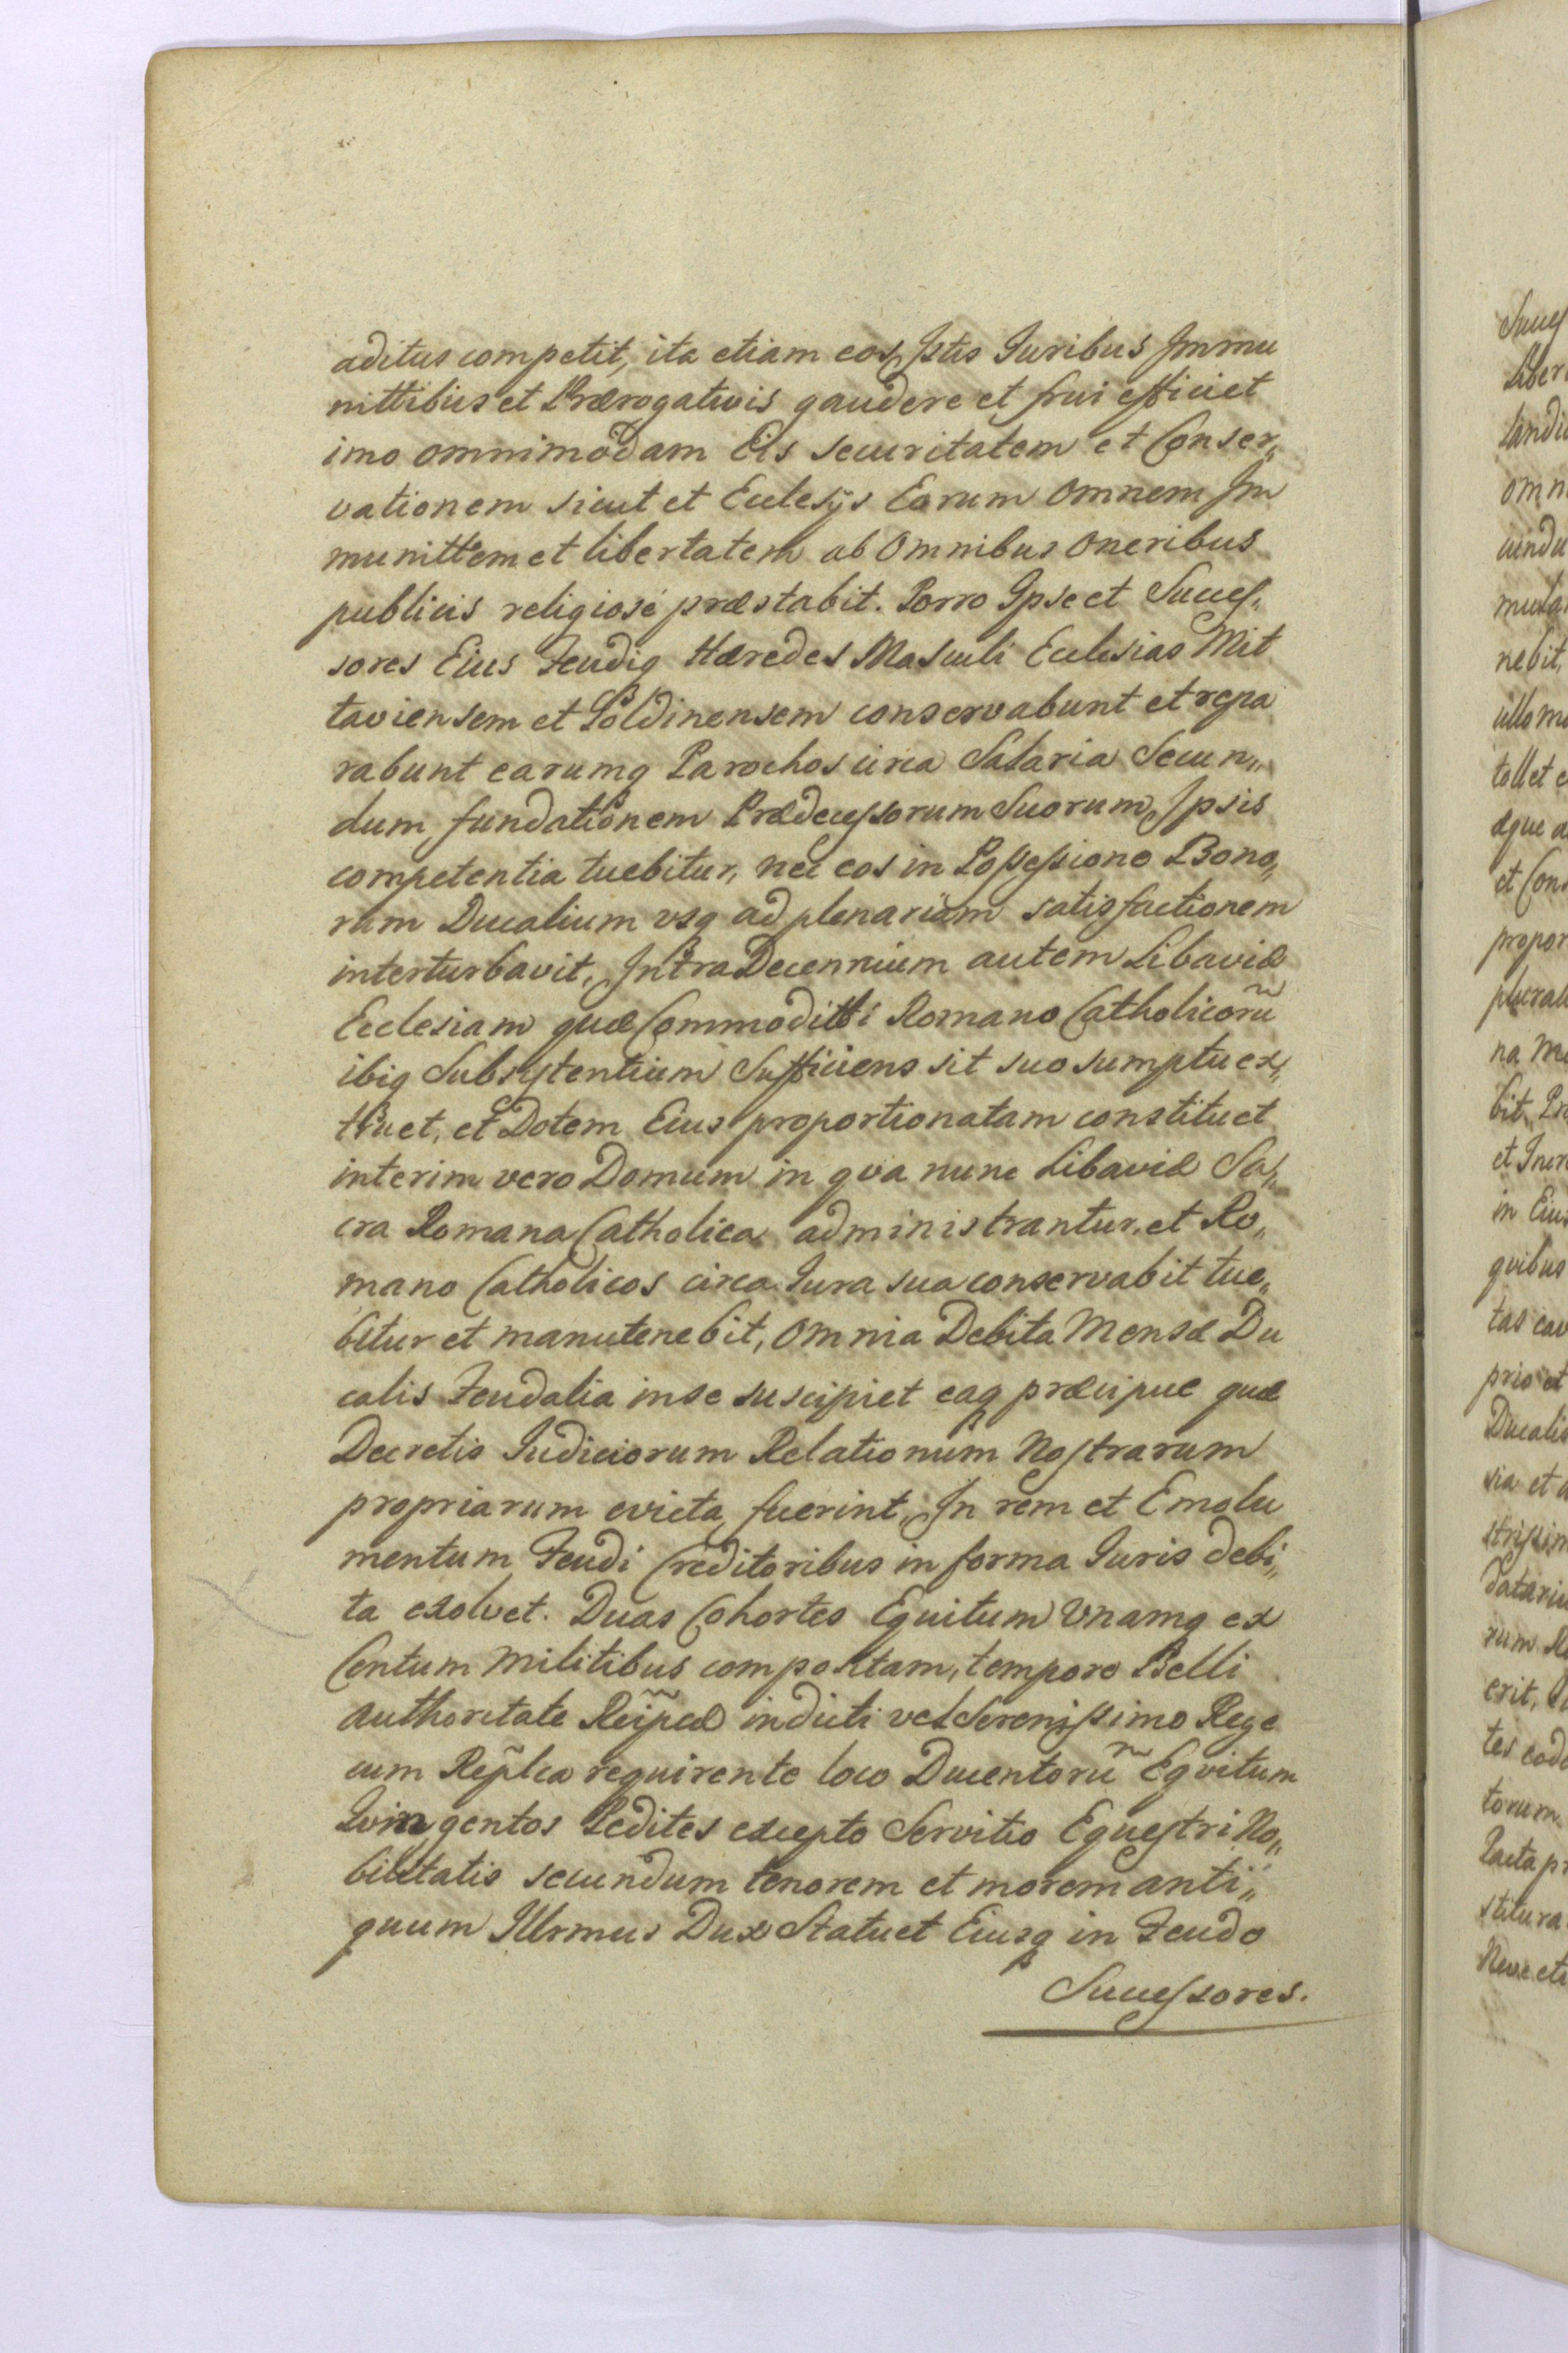 aditus competit, ita etiam eos Istis Iuribus Immu
nittibus et Prærogativis gaudere et frui efficiet
imo omnimodam Eis securitatem et Conser„
vationem sicut et Ecclesijs Earum Omnem Im
munittem et libertatem ab Omnibus Oneribus
publicis religiosé præstabit. Porro Ipse et Succes„
sores Eius Feudiq Hæredes Masculi Ecclesias Mit
taviensem et Goldinensem conservabunt et repa
rabunt earumq Parochos circa Salaria Secun„
dum fundationem Prædecessorum Suorum Ipsis
competentia tuebitur, nec eos in Possessione Bono„
rum Ducalium vsq ad plenariam satisfactionem
interturbavit, Intra Decennium autem Libaviæ
Ecclesiam quæ Commoditti Romano Catholicorũ
ibiq Subsystentium Sufficiens sit suo sumptu ex„
truet, et Dotem Eius proportionatam constituet
interim vero Domum in qva nunc Libaviæ Sa„
cra Romana Catholica administrantur, et Ro„
mano Catholicos circa Iura sua conservabit tue„
bitur et manutenebit, Omnia Debita Mensæ Du
calis Feudalia in se suscipiet eaq præcipue quæ
Decretis Iudiciorum Relationum Nostrarum
propriarum evicta fuerint, In rem et Emolu
mentum Feudi Creditoribus in forma Iuris debi„
ta exolvet. Duas Cohortes Equitum Vnamq ex
Centum Militibus compositam, tempore Belli
Authoritate Reipcæ indicti vel Serenissimo Rege
cum Replca requirente loco Ducentorũ Eqvitum
Qvingentos Pedites excepto Servitio Equestri No„
bilitatis secundum tenorem et morem anti„
quum Illrmus Dux Statuet Eiusq in Feudo
Successores.